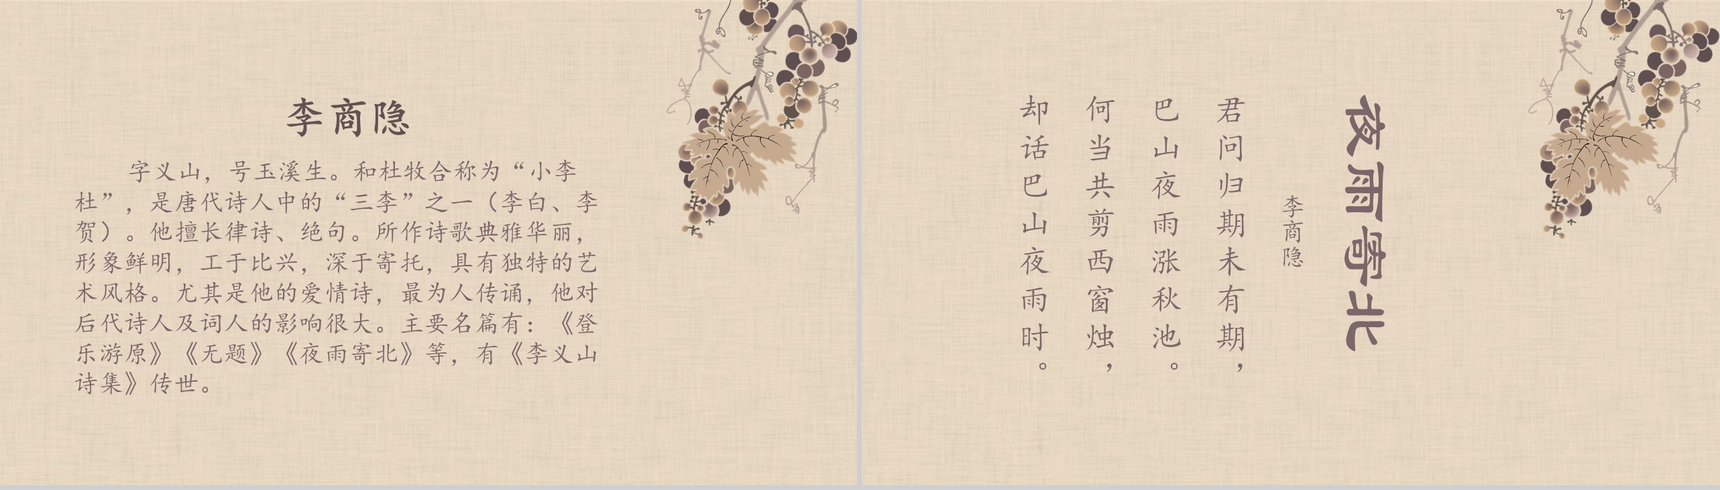 李商隐
字义山，号玉溪生。和杜牧合称为“小李
杜”，是唐代诗人中的“三李”之一（李白、李
贺）。他擅长律诗、绝句。所作诗歌典雅华丽，
形象鲜明，工于比兴，深于寄托，具有独特的艺
术风格。尤其是他的爱情诗，最为人传诵，他对
后代诗人及词人的影响很大。主要名篇有：《登
乐游原》《无题》《夜雨寄北》等，有《李义山
诗集》传世。
夜雨寄北
李商隐
君问归期未有期，
巴山夜雨涨秋池。
何当共剪西窗烛，
却话巴山夜雨时。